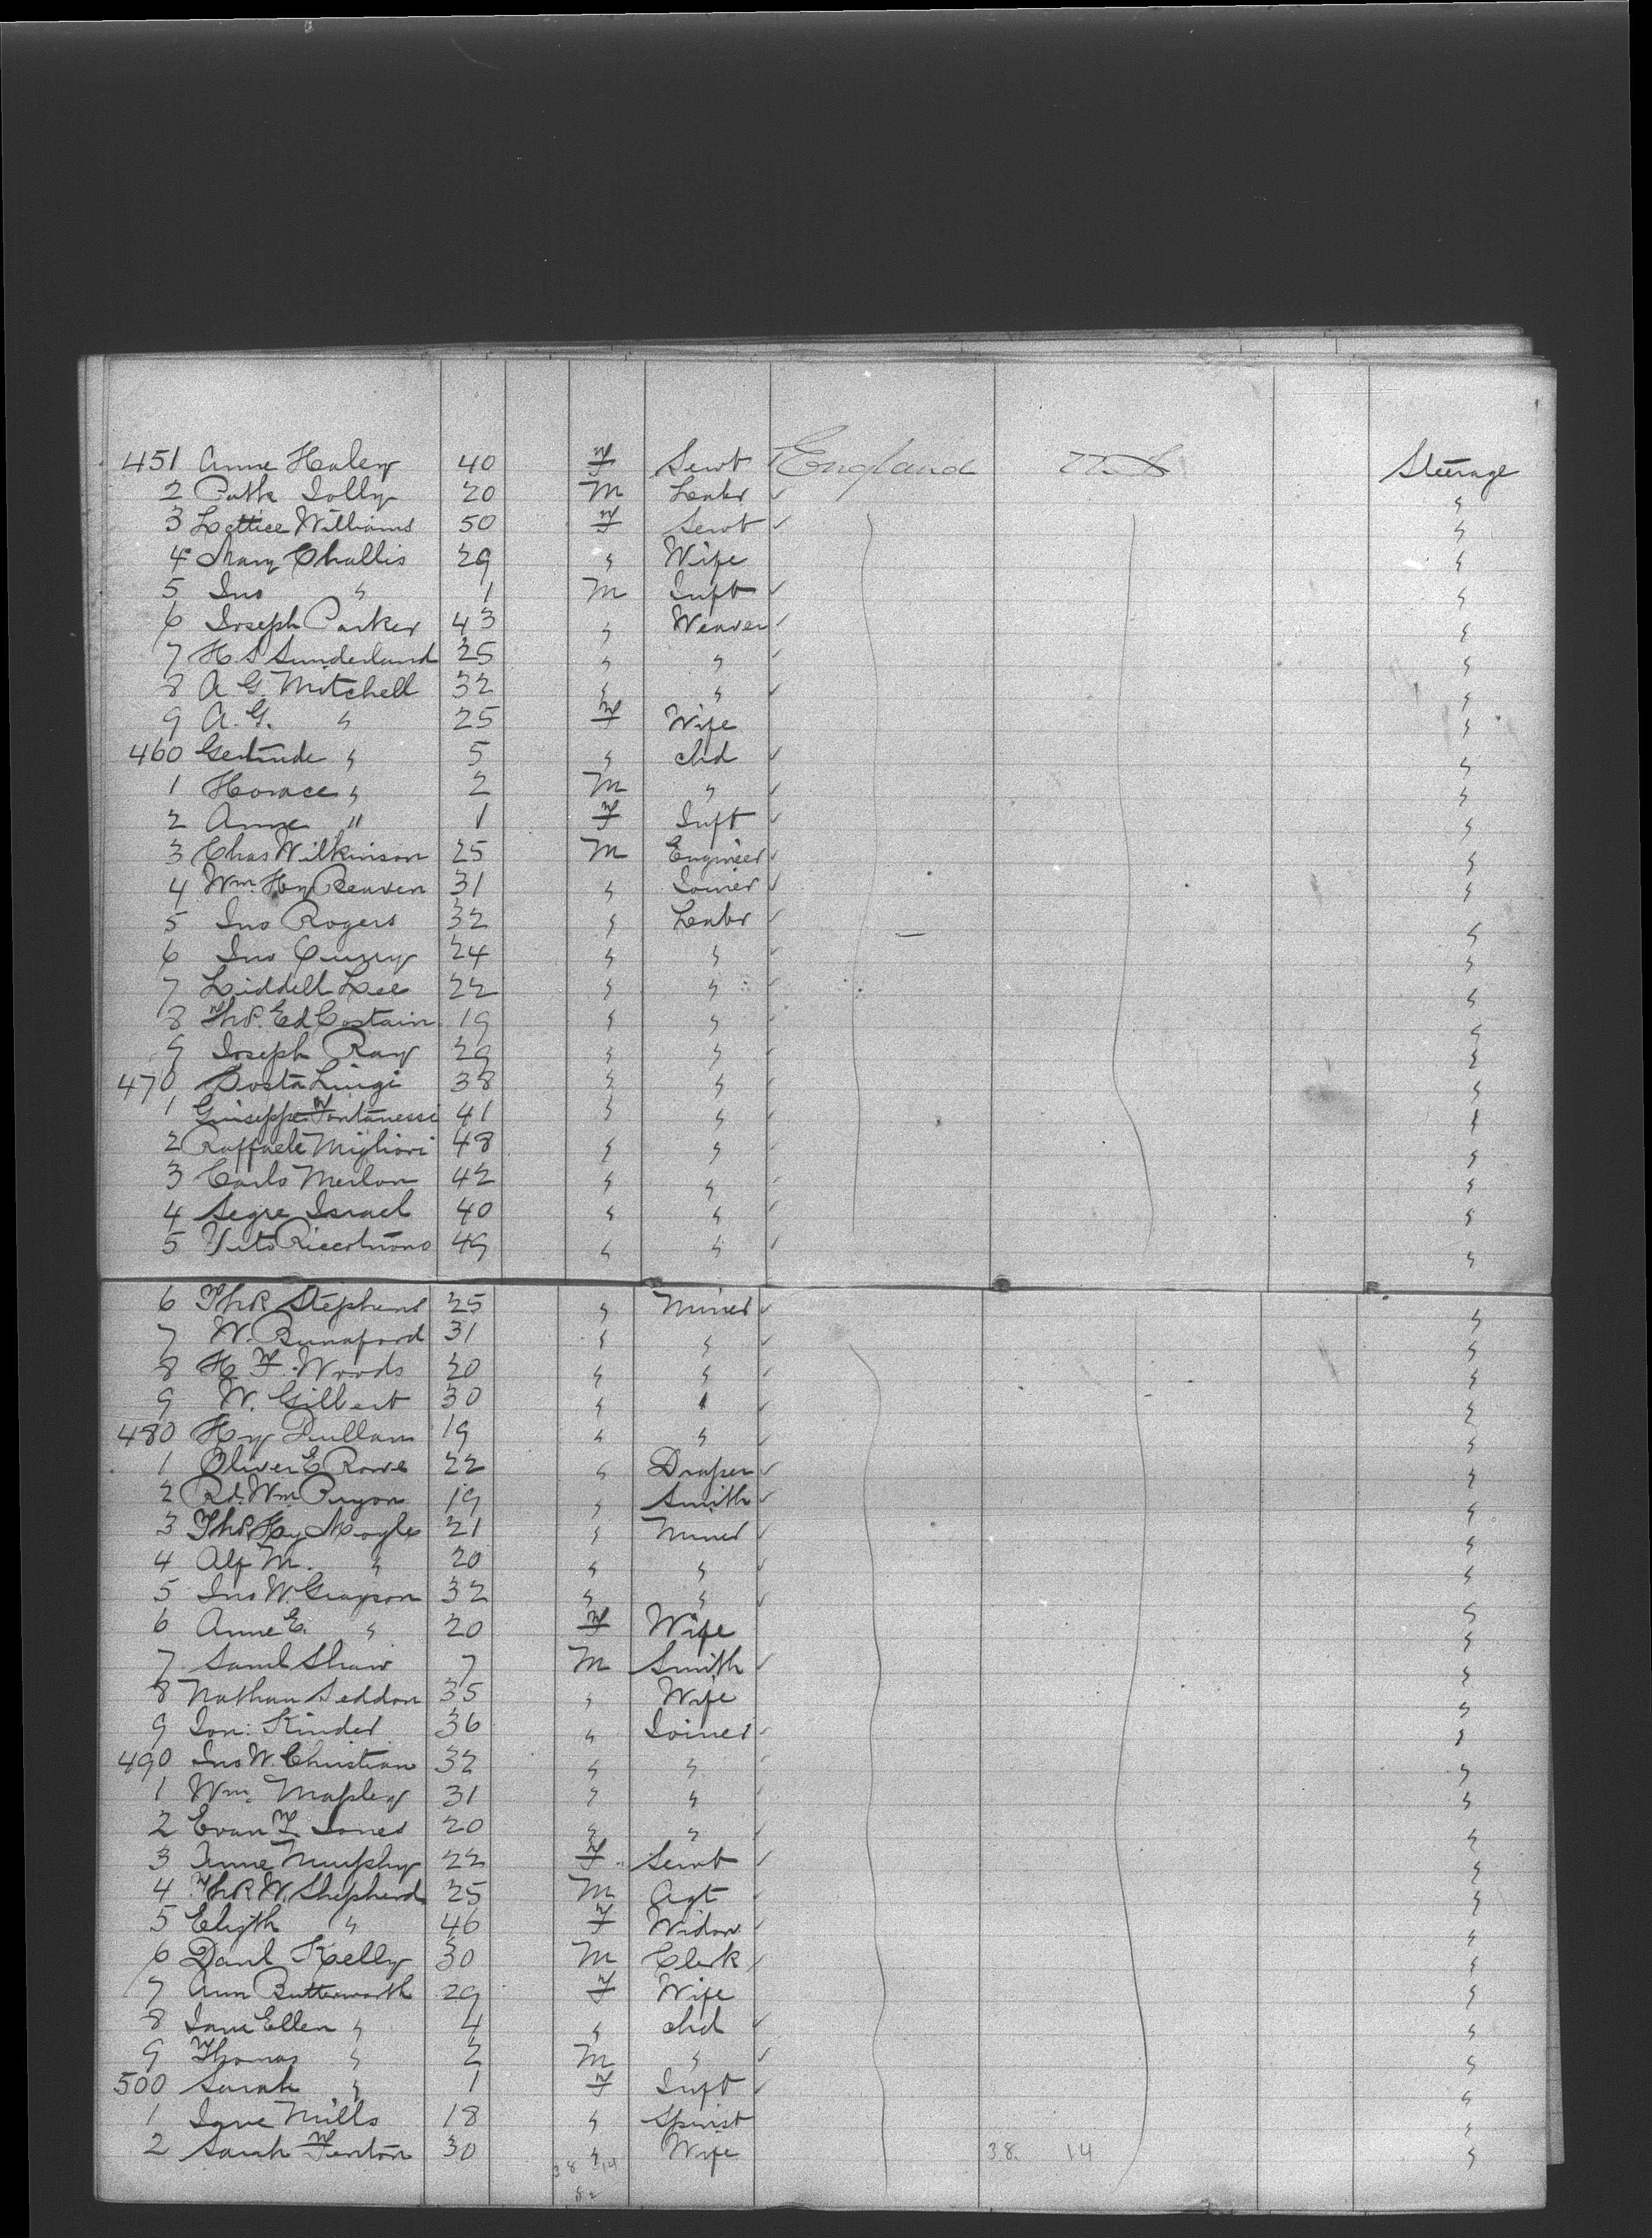 451 Anne Haley 40 F Servt England U.S Steerage
2 Patk Jolly 20 M Labr " "
3 Lettice Williams 50 F Servt "
4 Mary Challis 29 " Wife "
5 Jno " 1 M Inft "
6 Joseph Parker 43 " Weaver "
7 H. S Sunderland 25 " " "
8 A G. Mitchell 32 " " "
9 A. G. " 25 F Wife "
460 Gertrude " 5 " chd "
1 Horace " 2 M " "
2 Anne " 1 F Inft "
3 Chas Wilkinson 25 M Engineer "
4 Wm. Hy Reaven 31 " Joiner "
5 Jno Rogers 32 " Labr "
6 Jno Curry 24 " " "
7 Liddell Lee 22 " " "
8 Thos. Ed Costain 19 " " "
9 Joseph Ray 29 " " "
470 Costa Luigi 38 " " "
1 Giuseppe Fontanessi 41 " " "
2 Raffaele Migliori 48 " " "
3 Carlo Merlon 42 " " "
4 Segre Israel 40 " " "
5 Vito 49 " " "
6 Thos Stephens 25 " Miner "
7 W. Bunaford 31 " " "
8 H. F. Woods 20 " " "
9 W. Gilbert 30 " " "
480 Hy Pullam 19 " " "
1 Oliver E Rowe 22 " Draper "
2 Rd. Wm Pryor 19 " Smith "
3 Thos Hy 21 " Miner "
4 Alf M. " 20 " " "
5 Jno W. Grayson 32 " " "
6 Anne E. " 20 F Wife "
7 Saml Shaw 7 M Smith "
8 Nathan Seddon 35 " Wife "
9 Jon: Kinder 36 " Joiner "
490 Jno W. Christian 32 " " "
1 Wm. Mapley 31 " " "
2 Evan F Jones 20 " " "
3 Anne Murphy 22 F Servt "
4 Thos W. Shepherd 25 M Agt "
5 Elizth " 46 F Widow "
6 Danl Kelly 30 M Clerk "
7 Ann Butterworth 29 F Wife "
8 Jane Ellen " 4 " chd "
9 Thomas " 2 M " "
500 Sarah " 1 F Inft "
1 Jane Mills 18 " Spinst "
2 Sarah Fenton 30 " Wife "
38 14 38. 14
52